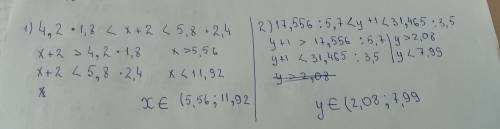 1) 4,2 · 1,8 < x+2 < 5,8 · 2,4
x+2 > 4,2 · 1,8   x > 5,56
x+2 < 5,8 · 2,4   x < 11,92
x ∈ (5,56 ; 11,92
2) 17,556 : 5,7 < y+1 < 31,465 : 3,5
y+1 > 17,556 : 5,7   y > 2,08
y+1 < 31,465 : 3,5   y < 7,99
y > 2,08
y ∈ (2,08 ; 7,99